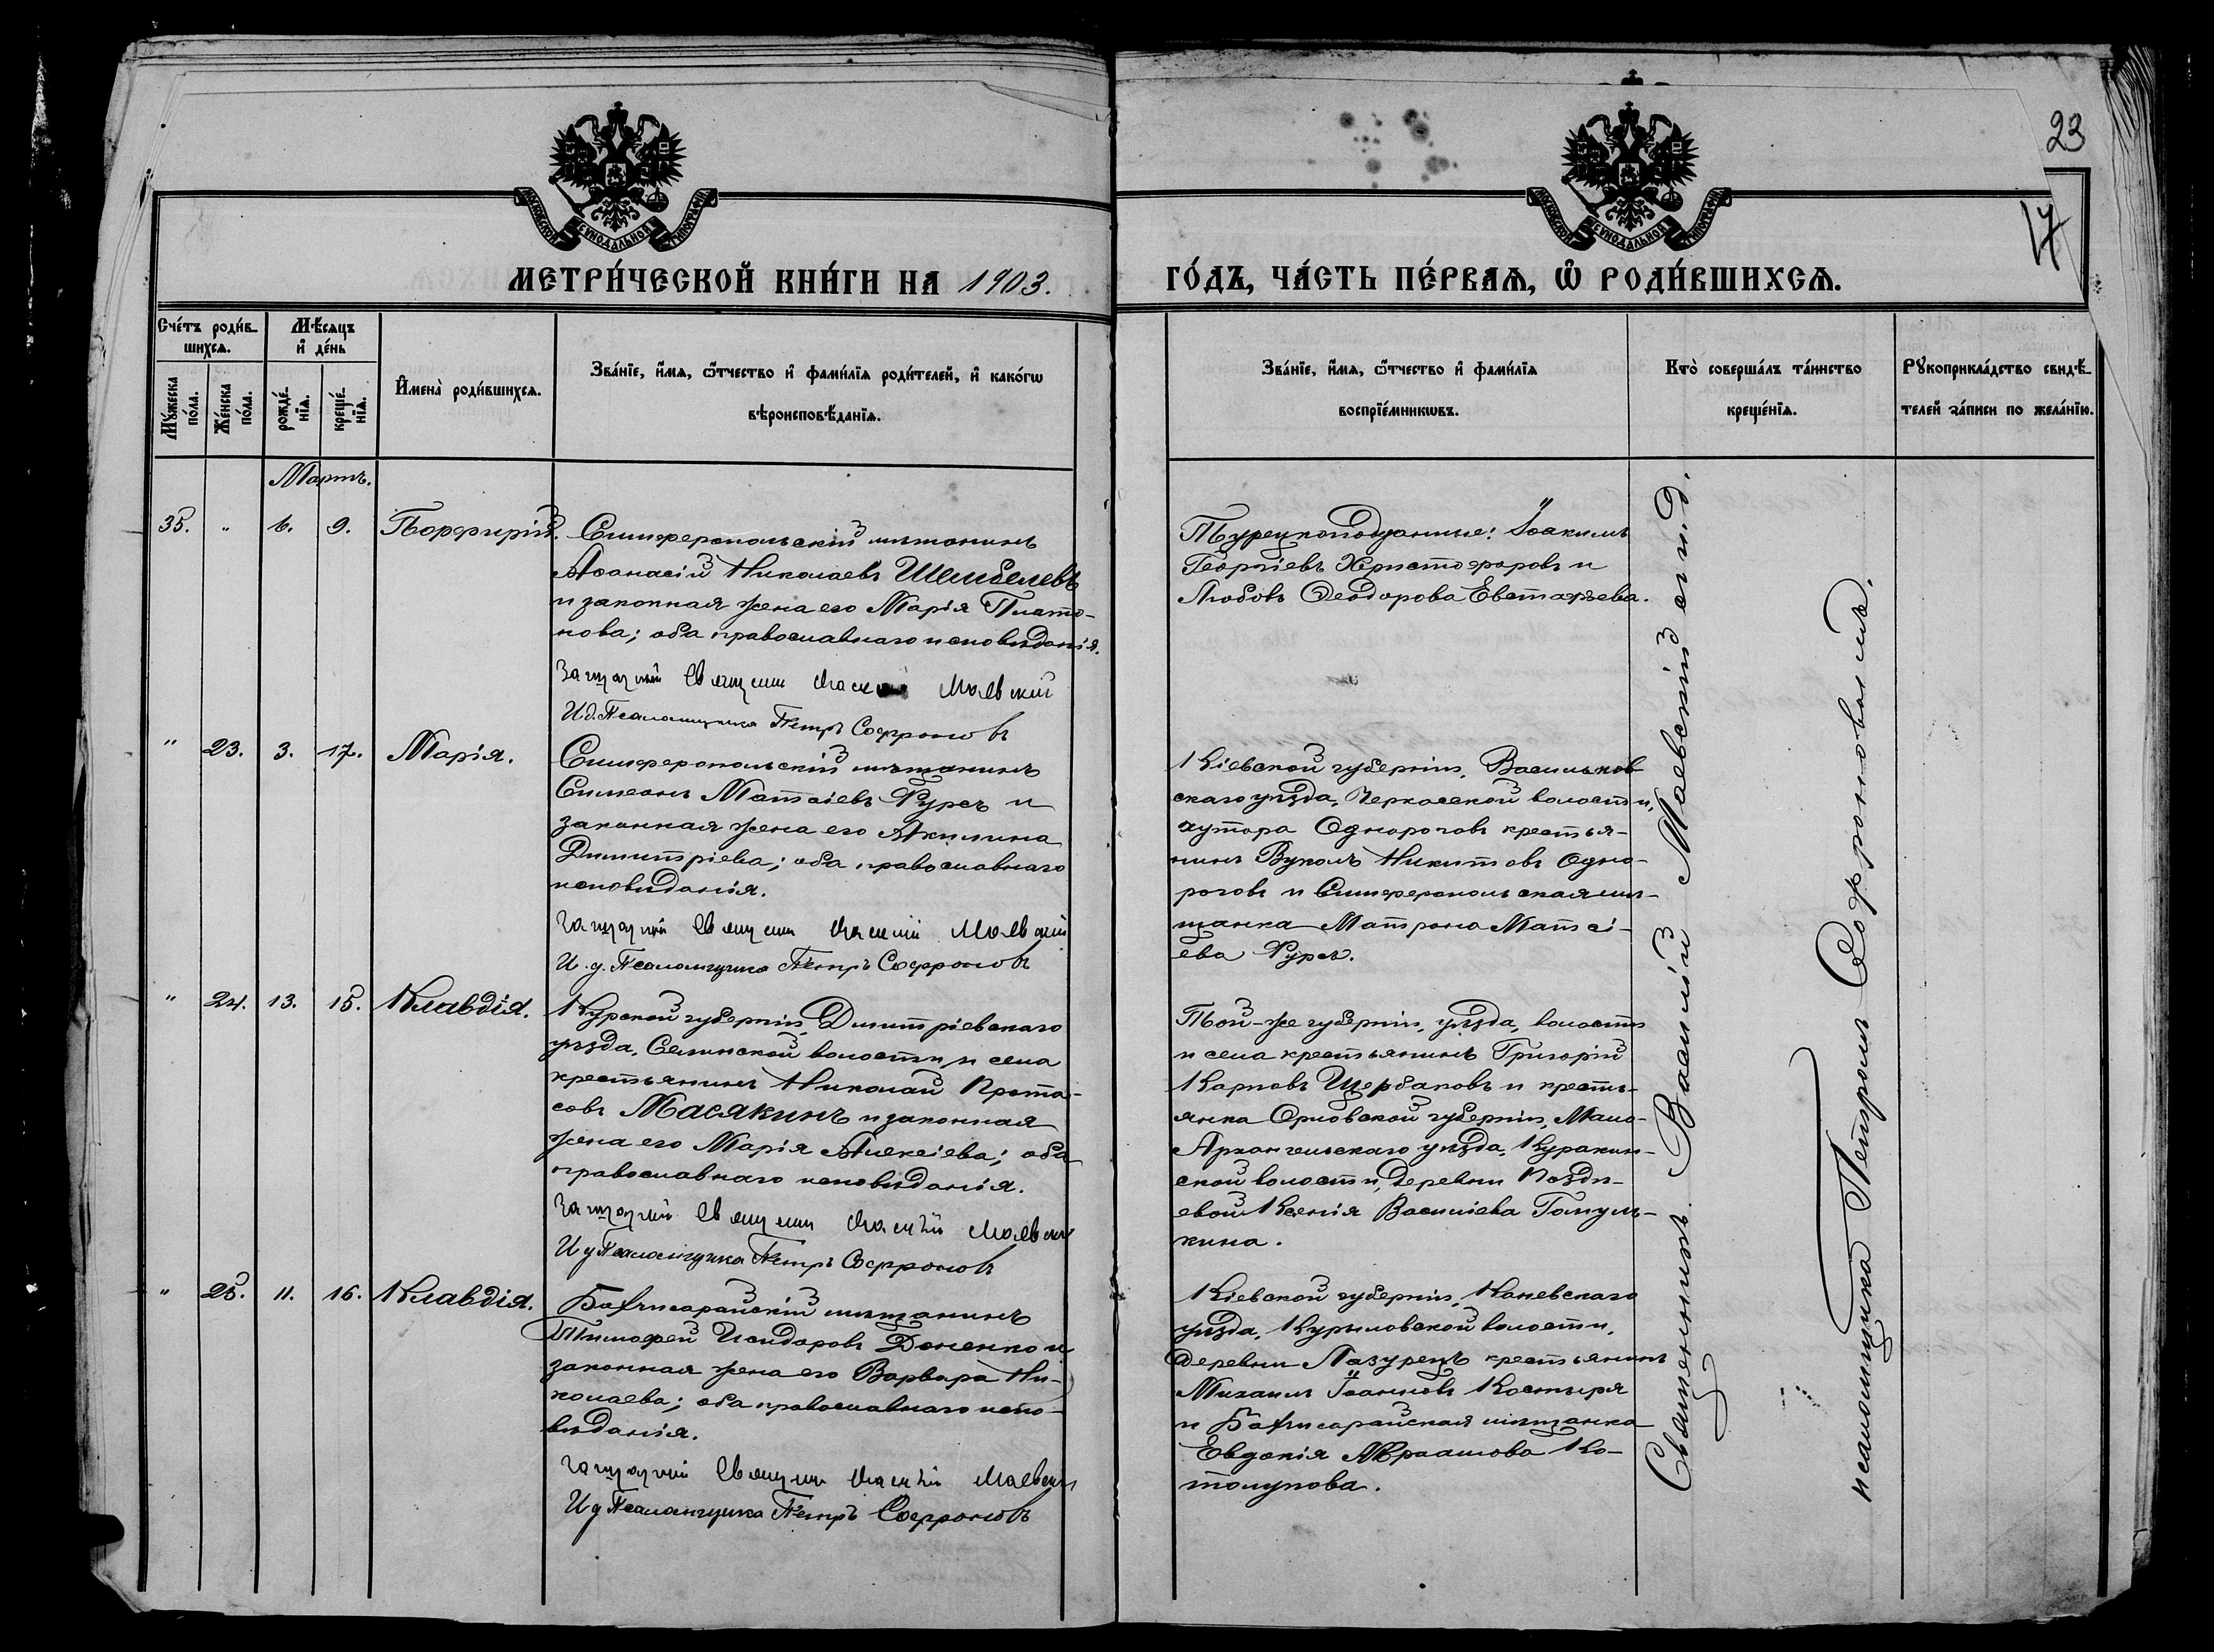 23
17
МОСКОВСКОЙ СѴНОДАЛЬНОЙ ТИПОГРАФІИ
МОСКОВСКОЙ СѴНОДАЛЬНОЙ ТИПОГРАФІИ
МЕТРИ́ЧЕСКОЙ КНИ́ГИ НА 1903.
ГО́ДЪ, ЧА́СТЬ ПЕ́РВАѦ, Ѿ РОДИ́ВШИХСѦ.
Сче́тъ роди́вшихсѧ.
Мѣ́сѧцъ и҆ де́нь
Мꙋ́жеска по́ла.
Же́нска по́ла.
рожде́нїѧ.
креще́нїѧ.
И҆мена̀ роди́вшихсѧ.
Зва́нїе, и҆́мѧ, ѻ҆́тчество и҆ фами́лїѧ роди́телей, и҆ како́гѡ
вѣроисповѣ́данїѧ.
Зва́нїе, и҆́мѧ, ѻ҆́тчество и҆ фами́лїѧ
воспрїе́мникѡвъ.
Кто̀ соверша́лъ та́инство
креще́нїѧ.
Рꙋкоприкла́дство свидѣ́-
телей за́писи по жела́нїю.
Мартъ.
35. " 6. 9. Порфирій.
Симферопольскій мѣщанинъ
Аѳанасій Николаевъ Шембелевъ
и законная жена его Марія Плато-
нова; оба православнаго исповѣданія.
Священ Василій Маевскій
И.д. Псаломщика Петръ Софроновъ
Турецкоподданные: Іоакимъ
Георгіевъ Христофоровъ и
Любовь Ѳеодорова Евстафьева.
" 23. 3. 17. Марія.
Симферопольскій мѣщанинъ
Симеонъ Матѳіевъ Фурсъ и
законная жена его Акилина
Димитріева; оба православнаго
исповѣданія.
Священ Василій Маевскій
И.д. Псаломщика Петръ Софроновъ
Кіевской губерніи, Васильков-
скаго уѣзда, Черкасской волости,
хутора Однороговъ крестья-
нинъ Вуколъ Никитовъ Одно-
роговъ и Симферопольская мѣ-
щанка Матрона Матѳі-
ева Фурсъ.
" 24. 13. 15. Клавдія.
Курской губерніи, Димитріевскаго
уѣзда, Селинской волости и села
крестьянинъ Николай Прота-
совъ Масякинъ и законная
жена его Марія Алексіева; оба
православнаго исповѣданія.
Священ Василій Маевскій
И д Псаломщика Петръ Софроновъ
Той-же губерніи, уѣзда, волости
и села крестьянинъ Григорій
Карповъ Щербаковъ и кресть-
янка Орловской губерніи, Мало-
Архангельскаго уѣзда, Куракин-
ской волости, деревни Поздѣ-
евой Ксенія Василіева Гомуль-
кина.
" 25. 11. 16. Клавдія.
Бахчисарайскій мѣщанинъ
Тимофей Исидоровъ Доненко и
законная жена его Варвара Ни-
колаева; оба православнаго испо-
вѣданія.
Священ Василій Маевскій
И д Псаломщика Петръ Софроновъ
Кіевской губерніи, Каневскаго
уѣзда, Курыловской волости,
деревни Лазурецъ крестьянинъ
Михаилъ Іоанновъ Костыря
и Бахчисарайская мѣщанка
Евдокія Авраамова Ко-
толупова.
Священникъ Василій Маевскій съ и.д.
псаломщика Петромъ Софроновымъ.